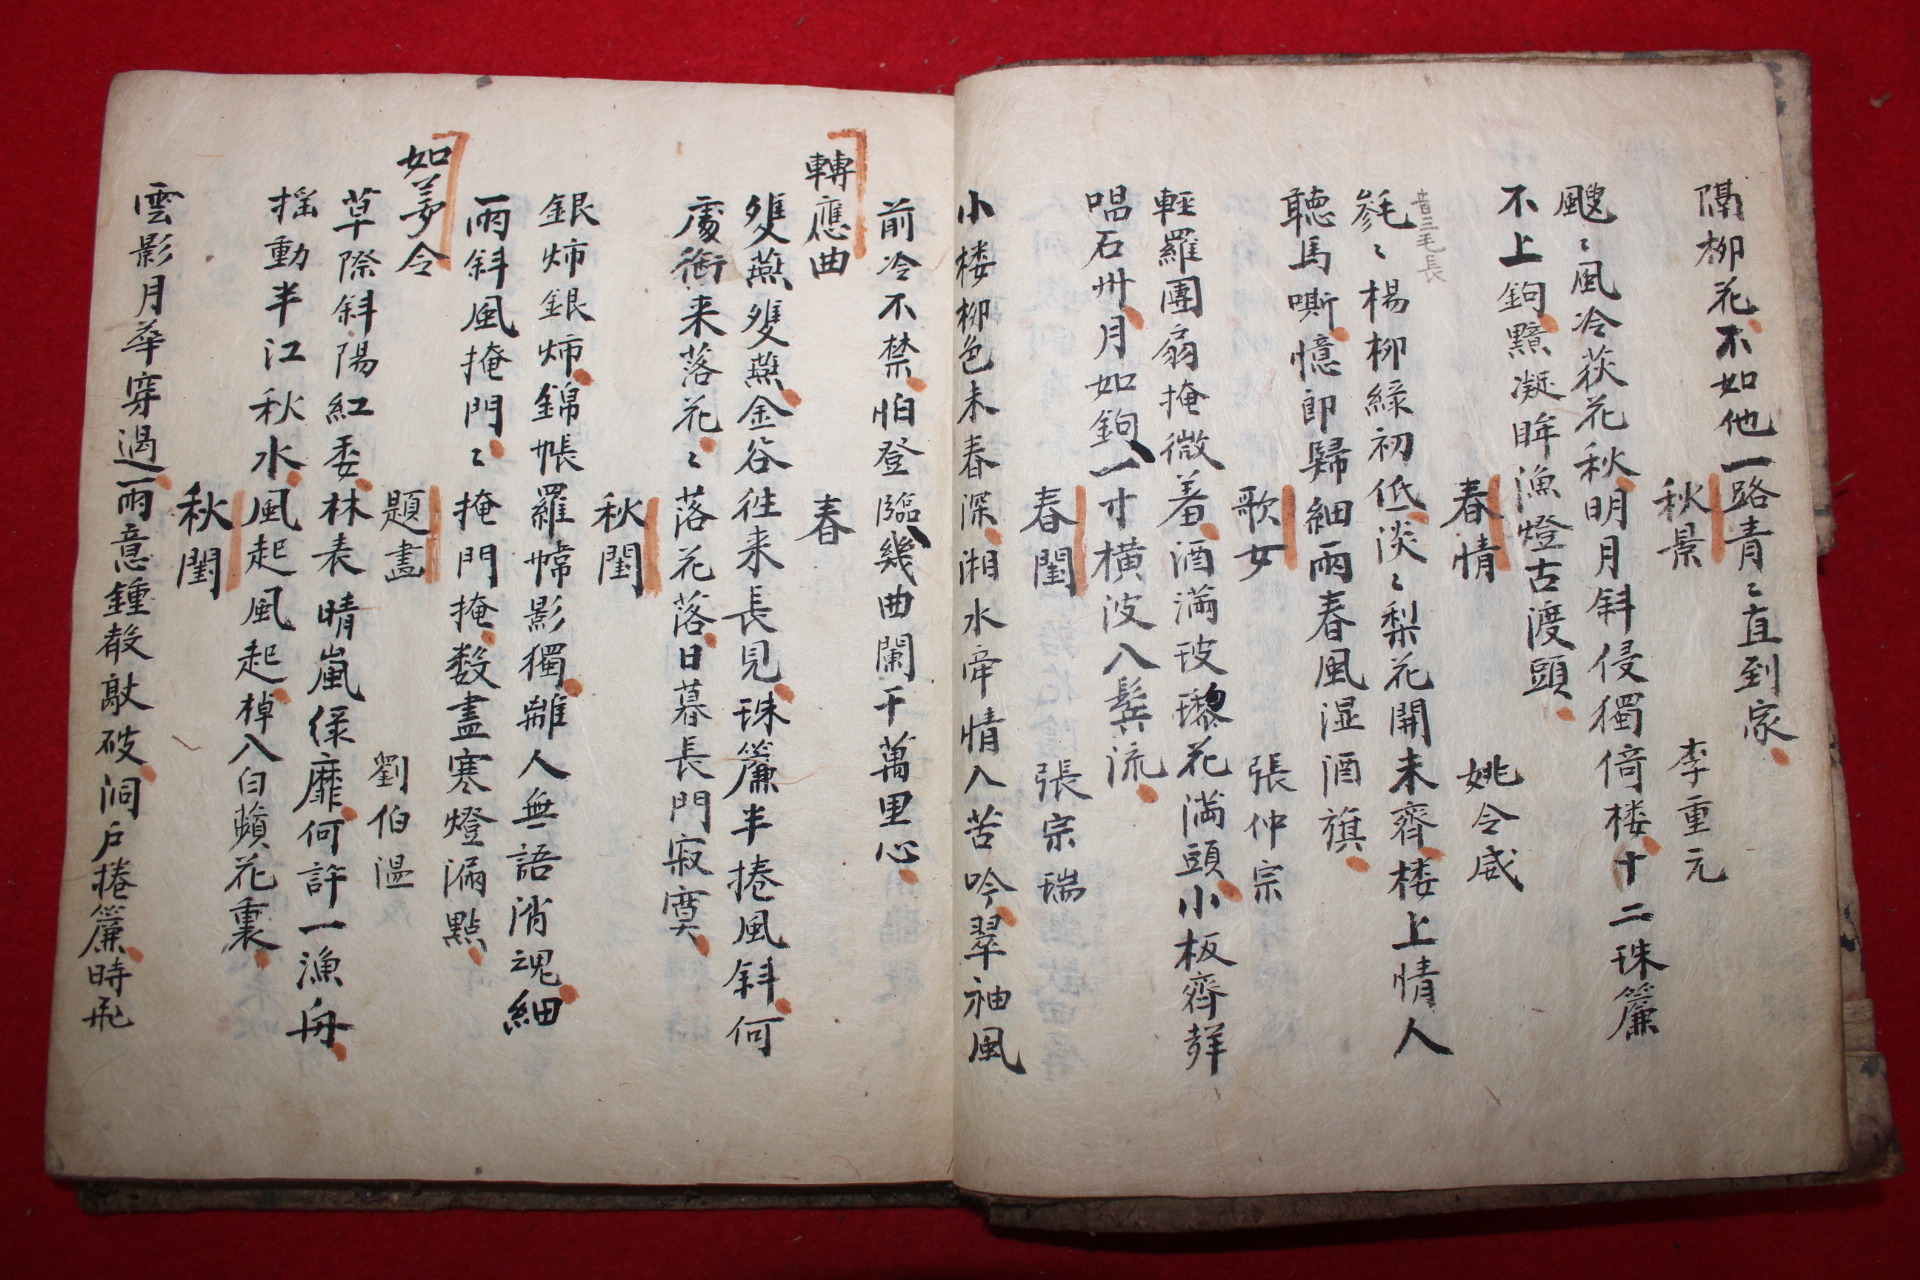 隔柳花不如他一路青〻直到家
秋景 李重元
颼〻風冷荻花秋明月斜侵獨倚楼十二珠簾
不上鉤黯凝眸漁燈古渡頭
春情 姚令威
毿〻楊柳綠初低淡〻梨花開未齊楼上情人
音三毛長
聴馬嘶憶郎歸細雨春風湿酒旗
歌女 張仲宗
輕羅團扇掩微羞酒滿玻瓈花滿頭小板齊聲
唱石州月如鉤一寸橫波入鬓流
春閨 張宗瑞
小楼柳色未春深湘水牽情入苦吟翠袖風
前冷不禁怕登臨幾曲闌干萬里心
轉應曲 春
雙燕雙燕金谷往来長見珠簾半捲風斜何
處銜来落花〻落花落日暮長門寂寞
秋閨
銀炉銀炉錦帳羅幃影獨離人無語消魂細
雨斜風掩門〻掩門掩數盡寒燈漏點
如夢令 題畫 劉伯温
草際斜陽紅委林表晴嵐綠靡何許一漁舟
揺動半江秋水風起風起棹入白蘋花裏
秋閨
雲影月華穿過雨意鍾聲敲破洞戶捲簾時飛